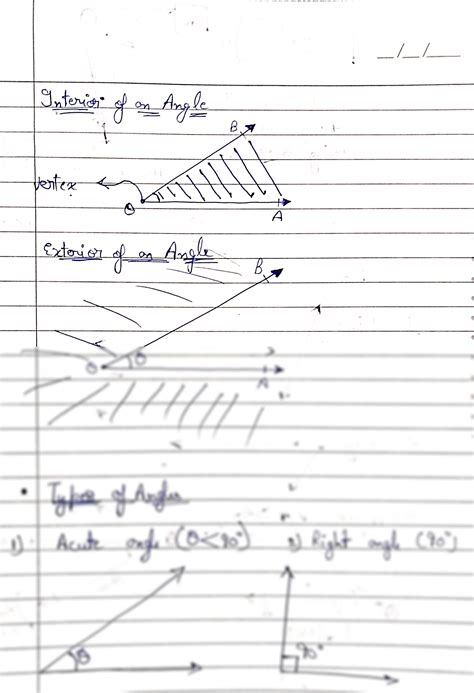 __/__/__
Interior of an Angle
B
vertex
O
A
Exterior of an Angle
B
θ
O
A
• Types of Angles
1) Acute angle (θ<90°) 2) Right angle (90°)
θ
90°